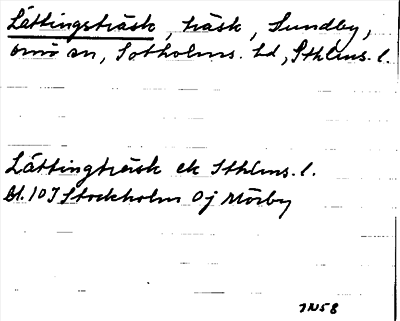 Lättingsträsk, träsk, Sundby,
Ornö sn, Sotholms hd, Sthlms. l.
Lättingträsk ek Sthlms. l.
Bl. 10 J Stockholm Oj Mörby
IN58